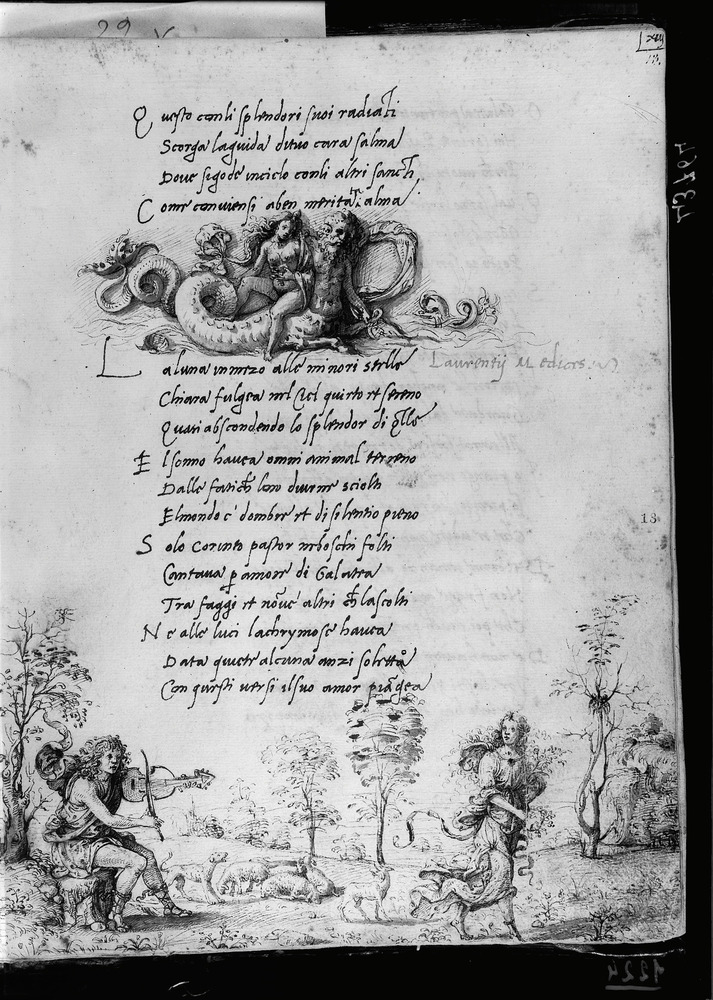 29
xiij
13.
Questo conli splendori suoi radiati
Scorga laguida dituo cara salma
Doue sigode inciclo conli altri sancti
Come conuiensi aben meritat. alma
Laurentij Medices
La luna in mezo alle minori stelle
Chiara fulgea nel ciel quieto et sereno
Quasi abscondendo lo splendor di q̄lle
El sonno hauea omni animal terreno
Dalle fatich loro diurne sciolti
Elmondo e' dombre et di silentio pieno
18
Solo Corinto pastor neboschi folti
Cantaua p amore di Galatea
Tra faggi et altri ch lascolti
Ne alle luci lachrymose hauea
Data quiete alcuna anzi soletto
Con questi uersi ilsuo amor piāgea
43764
1224